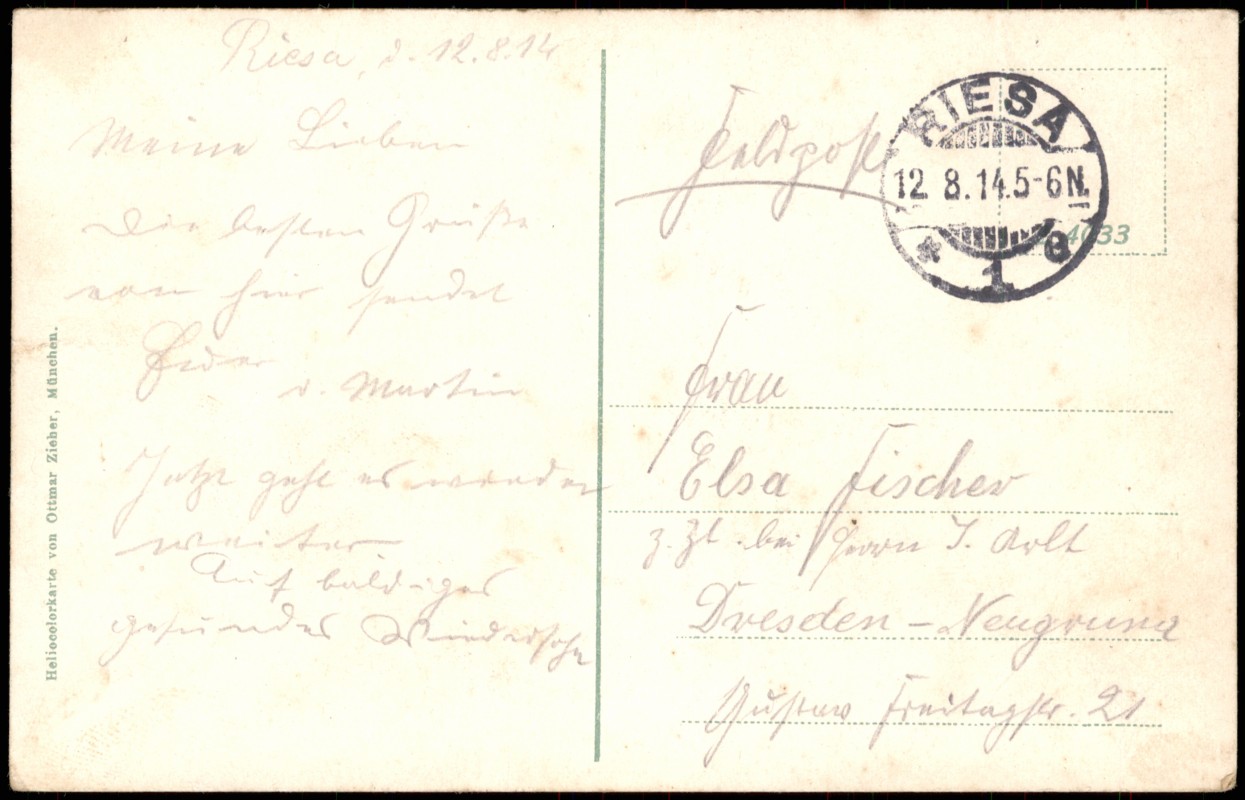 Riesa, d. 12.8.14
Meine Lieben
Die besten Grüße
von hier sendet
Euer
Martin
Jetzt geht es wieder
weiter
Auf baldiges
gesundes Wiedersehn
Heliocolorkarte von Ottmar Zieher, München.
Feldpost
RIESA
12. 8. 14. 5-6 N.
* 1 a
4033
Frau
Elsa Fischer
z. Zt. bei Herrn J. Arlt
Dresden – Neugruna
Gustav Freitagstr. 21